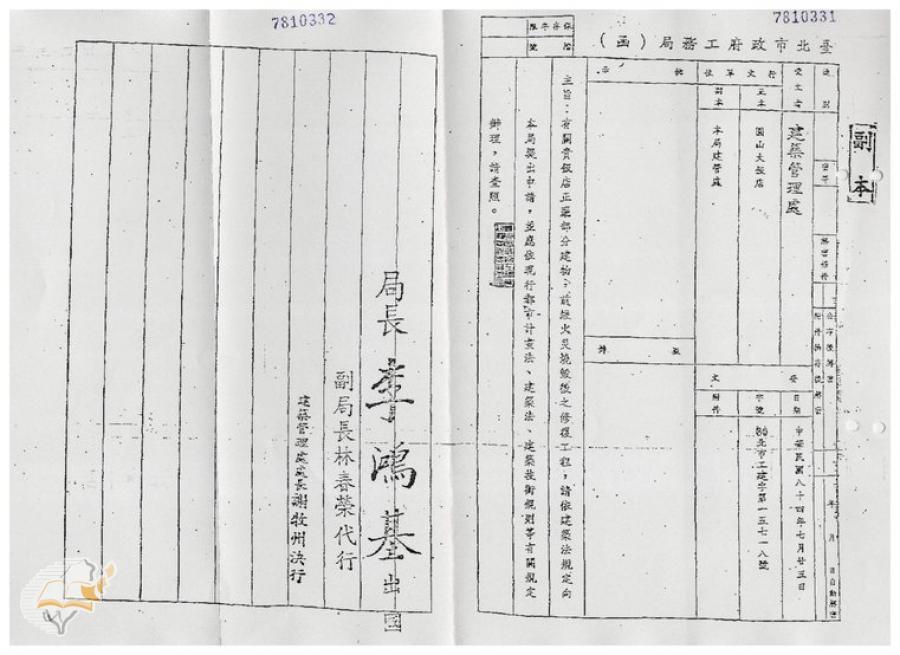 7810331
7810332
副本
臺北市政府工務局(函)
保存年限
檔號
速別
受文者
建築管理處
行文單位
正本
圓山大飯店
副本
本局建管處
批示
擬辦
發文
日期
中華民國八十四年七月廿五日
字號
北市工建字第一五七一八號
附件
主旨:有關貴飯店正築部分建物,前經火災燒毀後之修復工程,請依建築法規定向
本局提出申請,並應依現行都市計畫法、建築法、建築技術規則等有關規定
辦理,請查照。
局長李鴻基出國
副局長林春榮代行
建築管理處處長謝牧州決行